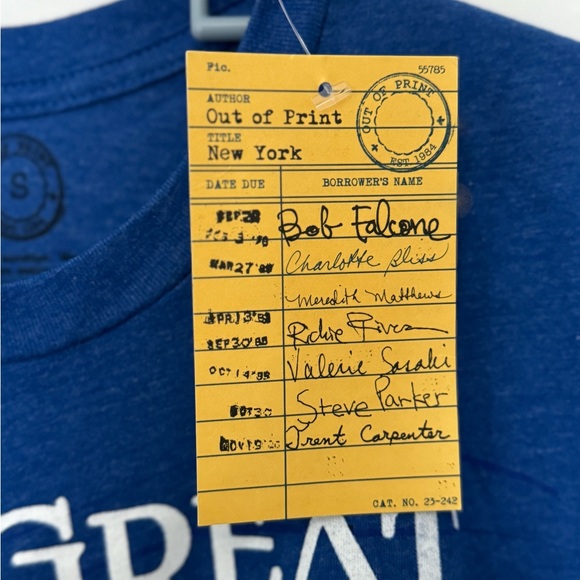 Fic. 55785
AUTHOR
Out of Print
TITLE
New York
OUT OF PRINT
EST. 1984
DATE DUE BORROWER'S NAME
SEP 28 Bob Falcone
Charlotte Bliss
MAR 27 '8
Meredith Matthews
APR 13 '8 Richie Rivera
SEP 30 '88
OCT 14 '88 Valerie Sasaki
OCT 30 Steve Parker
NOV 19 Trent Carpenter
CAT. NO. 23-242
S
GREAT